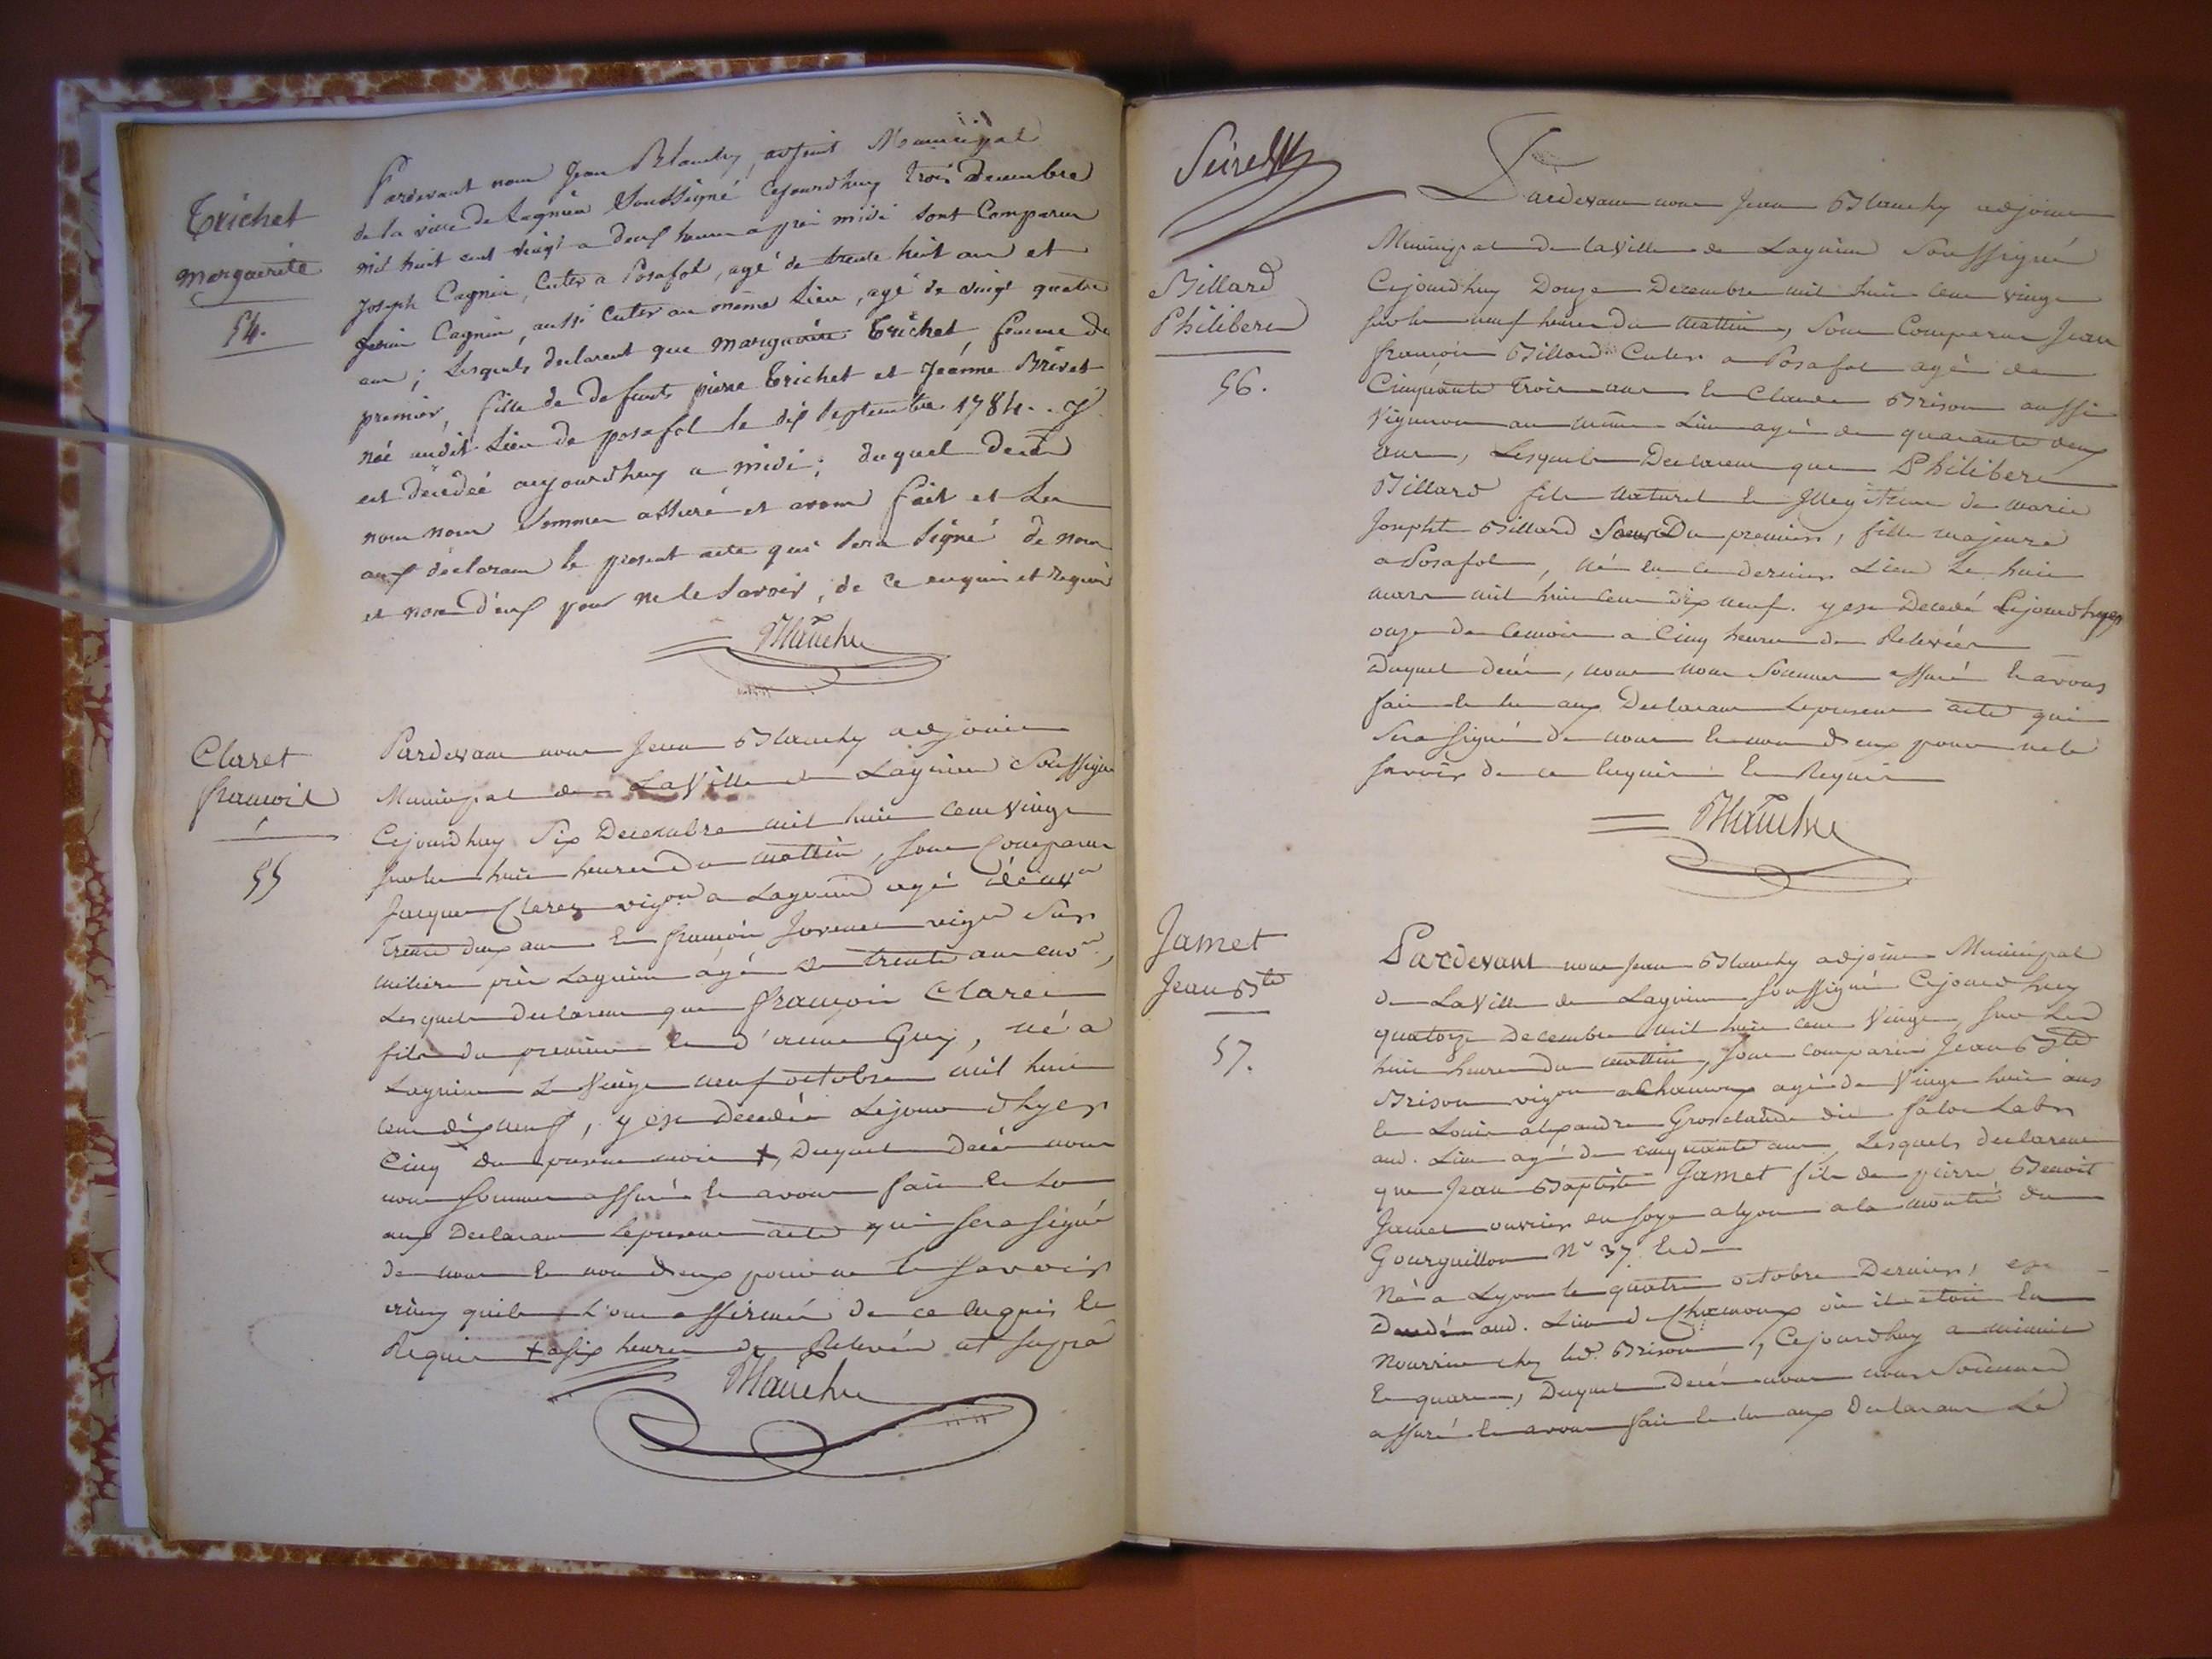 Trichet
marguerite
54.
Pardevant nous Jean Blanchy, adjoint Municipal
de la ville de Lagnieu Soussigné Cejourdhuy trois decembre
mil huit cent vingt a deux heures apprès midi sont Comparus
Joseph Cagnin, Cultr a Posafol, agé de trente huit ans et
Cagnin, aussi Cultr au même Lieu, agé de vingt quatre
ans ; Lesquels declarent que marguerite Trichet, femme du
premier, fille de defunts pierre Trichet et Jeanne Brivet
née audit Lieu de posafol le dix Septembre 1784. y
est décédée aujourdhuy a midi ; duquel decès
nous nous Sommes assurés et avons fait et Lu
aux déclarans le présent acte qui Sera Signé de nous
et non d'eux pour ne le Savoir, de ce enquis et Requis
Blanchy
Claret
françois
55
Pardevant nous Jean Blanchy adjoint
Municipal de La Ville de Lagnieu Soussigné
Cejourdhuy Six Decembre mil huit cent vingt
Sur les huit heures du mattin, Sont Comparus
Jacques Claret vigon a Lagnieu agé
trente deux ans et françois Juvenet vign Sur
près Lagnieu agé de trente ans envon,
Lesquels declarent que françois Claret
fils du premier et d' Guy, né a
Lagnieu Le Vingt neuf octobre mil huit
cent dix neuf, y est decedé Lejour dhyer
Cinq du present mois +, Duquel Decès nous
nous Sommes assurés et avons fait et Lu
aux Declarans le present acte qui Sera Signé
de nous et non d'eux pour ne le Savoir
ainsy quils L'ont affirmé de ce enquis et
Requis + a Six heures de Relevée ut Supra
Blanchy
Billard
Philibert
56.
Pardevant nous Jean Blanchy adjoint
Municipal de la Ville de Lagnieu Soussigné
Cejourdhuy Douze Decembre mil huit cent vingt
Sur les neuf heures du Mattin, Sont Comparus Jean
françois Billard Cultr a Posafol agé de
Cinquante trois ans et Claude Brison aussi
Vigneron au même Lieu agé de quarante deux
ans, Lesquels Declarent que Philibert
Billard fils Naturel et Illegitime de Marie
Josephte Billard Soeur Du premier, fille majeure
a Posafol, né en ce dernier Lieu Le huit
mars mil huit cent dix neuf. y est Decedé Lejourdhyer
onze de ce mois a Cinq heures de Relevée
Duquel decès, nous nous Sommes assurés et avons
fait et lu aux Declarans Le present acte qui
Sera Signé de nous et non d'eux pour ne le
Savoir de ce Enquis et Requis
Blanchy
Jamet
Jean Bte
57.
Pardevant nous Jean Blanchy adjoint Municipal
de La Ville de Lagnieu Soussigné Cejourdhuy
quatorze Decembre mil huit cent Vingt, Sur Les
huit heures du mattin, Sont comparus Jean Bte
Brison vigon a Chamoux agé de Vingt huit ans
et Louis alexandre Grosclaude dit Labr
aud. Lieu agé de cinquante ans, Lesquels declarent
que Jean Baptiste Jamet fils de pierre Benoit
Jamet ouvrier en soye a Lyon a la montée du
Gourguillon N° 37. et de
Né a Lyon le quatre octobre Dernier, est
Decedé aud. Lieu de Chamoux où il etoit en
Nourrice chez led. Brison, Cejourdhuy a minuit
Et quart, Duquel Decès nous nous Sommes
assurés et avons fait et lu aux Declarans Le